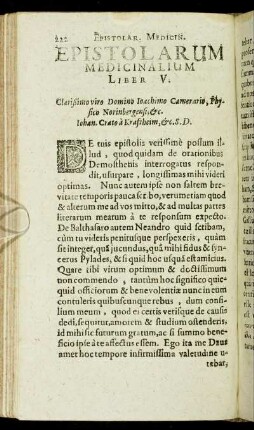 222 EPISTOLAR. MEDICIN.
EPISTOLARUM
MEDICINALIUM
LIBER V.
Clarissimo viro Domino Ioachimo Camerario, Phy-
sico Norinbergensi, &c.
Iohan. Crato à Kraftheim, &c. S. D.
DE tuis epistolis verissimè possum il-
lud, quod quidam de orationibus
Demosthenis interrogatus respon-
dit, usurpare, longissimas mihi videri
optimas. Nunc autem ipse non saltem bre-
vitate temporis pauca scribo, verumetiam quod
& alterum me ad vos mitto, & ad multas partes
literarum mearum à te responsum expecto.
De Balthasaro autem Neandro quid scribam,
cùm tu videris penitusque perspexeris, quàm
sit integer, quã jucundus, quã mihi fidus & syn-
cerus Pylades, & si quid hoc usquã est amicius.
Quare tibi virum optimum & doctissimum
non commendo, tantùm hoc significo quic-
quid officiorum & benevolentiæ nunc in eum
contuleris quibuscunque rebus, dum consi-
lium meum, quod ei certis verisque de causis
dedi, sequetur, amorem & studium ostenderis,
id mihi sic futurum gratum, ac si summo bene-
ficio ipse à te affectus essem. Ego ita me Deus
amet hoc tempore infirmissima valetudine u-
tebar,